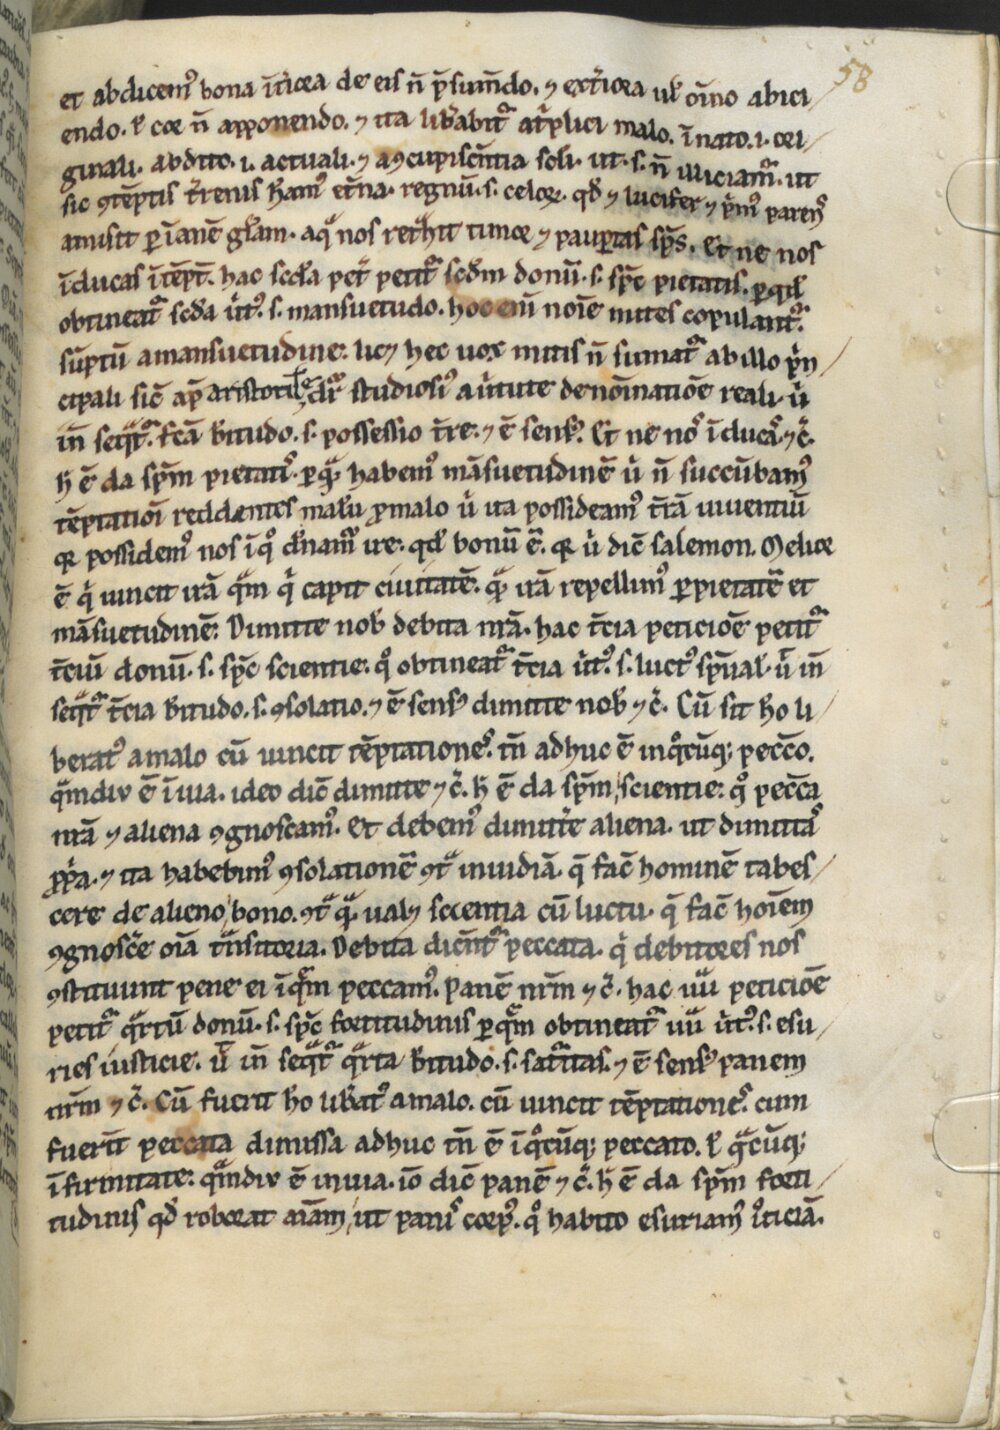 58
et abdicemꝰ bona īt̾icea de eis n̄ p̄sum̄do. ⁊ ext̾iora ul̓ oīno abici/
endo. ł cor n̄ apponendo. ⁊ ita lib̓abit᷑ at̾plici malo. īnato. i. ori/
ginali. abdito. i. actuali. ⁊ aꝯcupisc̄tia soli. ut. s. n̄ illiciam᷑. ut
sic ꝯtēptis t̾renis h̓amꝰ et̄na. regnū. s. celoꝝ. qd̓ ⁊ lucifer ⁊ p̾mꝰ parenꝰ
amisit ꝑ īanē gl̓am. aqͣ nos ret̾hit timor ⁊ pauꝑtas sp̄s. Et ne nos
īducas ītēpt̄. hac scd̓a pet̾ petit᷑ scd̓m donū. s. sp̄c pietatis. ꝑqd̓
obtineat᷑ scd̓a ůt᷒. s. mansuetudo. hoc em̄ noīe mites copulant᷑.
sūptū amansuetudine. licꝫ hec uox mitis n̄ sumat᷑ abillo p̾n/
cipali sic̄ ap̄ aristotil̓ē dr᷑ studiosꝰ au̾tute denōinatiōe reali. u̾
iñ seqͣt᷑. fc̄a b̓titudo. s. possessio t̄re. ⁊ ē sensꝰ. Et ne noꝰ īducᷤ. ⁊c̄.
h̓ ē da sp̄m pietatiꝰ. ꝑqͣ habemꝰ māsuetudinē u̾ n̄ succūbamꝰ
tēptatiōi reddentes malū ꝓmalo u̾ ita possideamꝰ t̄rā uiuentiū
qꝛ possidemꝰ nos īqͦ d̓nam᷑ ire. qd̓ bonū ē. qꝛ u̾ dic̄ salemon. Melior
ē q̾ uincit irā qͣm q̾ capit ciuitatē. qͣ irā repellimꝰ ꝑpietatē et
māsuetudinē. Dimitte nob̓ debita nr̄a. hac t̄cia peticiōe petit᷑
t̄ciū donū. s. sp̄c scientie. qͦ obtineat᷑ t̄cia ůt᷒. s. luctꝰ sp̄ual̓. u̾ iñ
seqͣt᷑ t̄cia b̓titudo. s. ꝯsolatio. ⁊ ē sensꝰ dimitte nob̓ ⁊c̄. Cū sit ho li/
beratꝰ amalo cū uincit tēptationeꝰ. tn̄ adhuc ē inqͦcūqꝫ pecc̄o.
qͣmdiu ē ī uia. ideo dic̄ dimitte ⁊c̄. h̓ ē da sp̄m scientie. qͦ pecc̄a
nr̄a ⁊ aliena ꝯgnoscamꝰ. Et debemꝰ dimitt̾e aliena. ut dimittāꝰ
ꝓp̾a. ⁊ ita habebimꝰ ꝯsolationē ꝯtͣ inuidiā. q̄ fac̄ hominē tabes/
cere de alieno bono. ꝯtͣ qͣ. ualꝫ sciencia cū luctu. q̄ fac̄ hoīem
ꝯgnosc̾e oīa tͣnsitoria. Debita dicn̄t᷑ peccata. q̾ debitores nos
ꝯstituunt pene ei īqͣm peccamꝰ. Panē nr̄m ⁊c̄. hac iiiiͣ peticiōe
petit᷑ qͣrtū donū. s. sp̄c fortitudinis ꝑqͣm obtineat᷑ iiiiͣ ůt᷒. s. esu/
ries iusticie. u̾ iñ seqͣt᷑ qͣrta b̓titudo. s. sat᷑itas. ⁊ ē sensꝰ panem
nr̄m ⁊c̄. Cū fuerit ho lib̓atꝰ amalo. cū uincit tēptationeꝰ. cum
fuerīt peccata dimissa adhuc tn̄ ē īqͦcūqꝫ peccato. ł qͣcūqꝫ
īfirmitate. qͣmdiu ē inuia. iō dic̄ panē ⁊c̄. h̓ ē da sp̄m forti/
tudinis qd̓ roborat aīam, ut panis corpꝰ. qͦ habito esuriamꝰ iͦticiā.